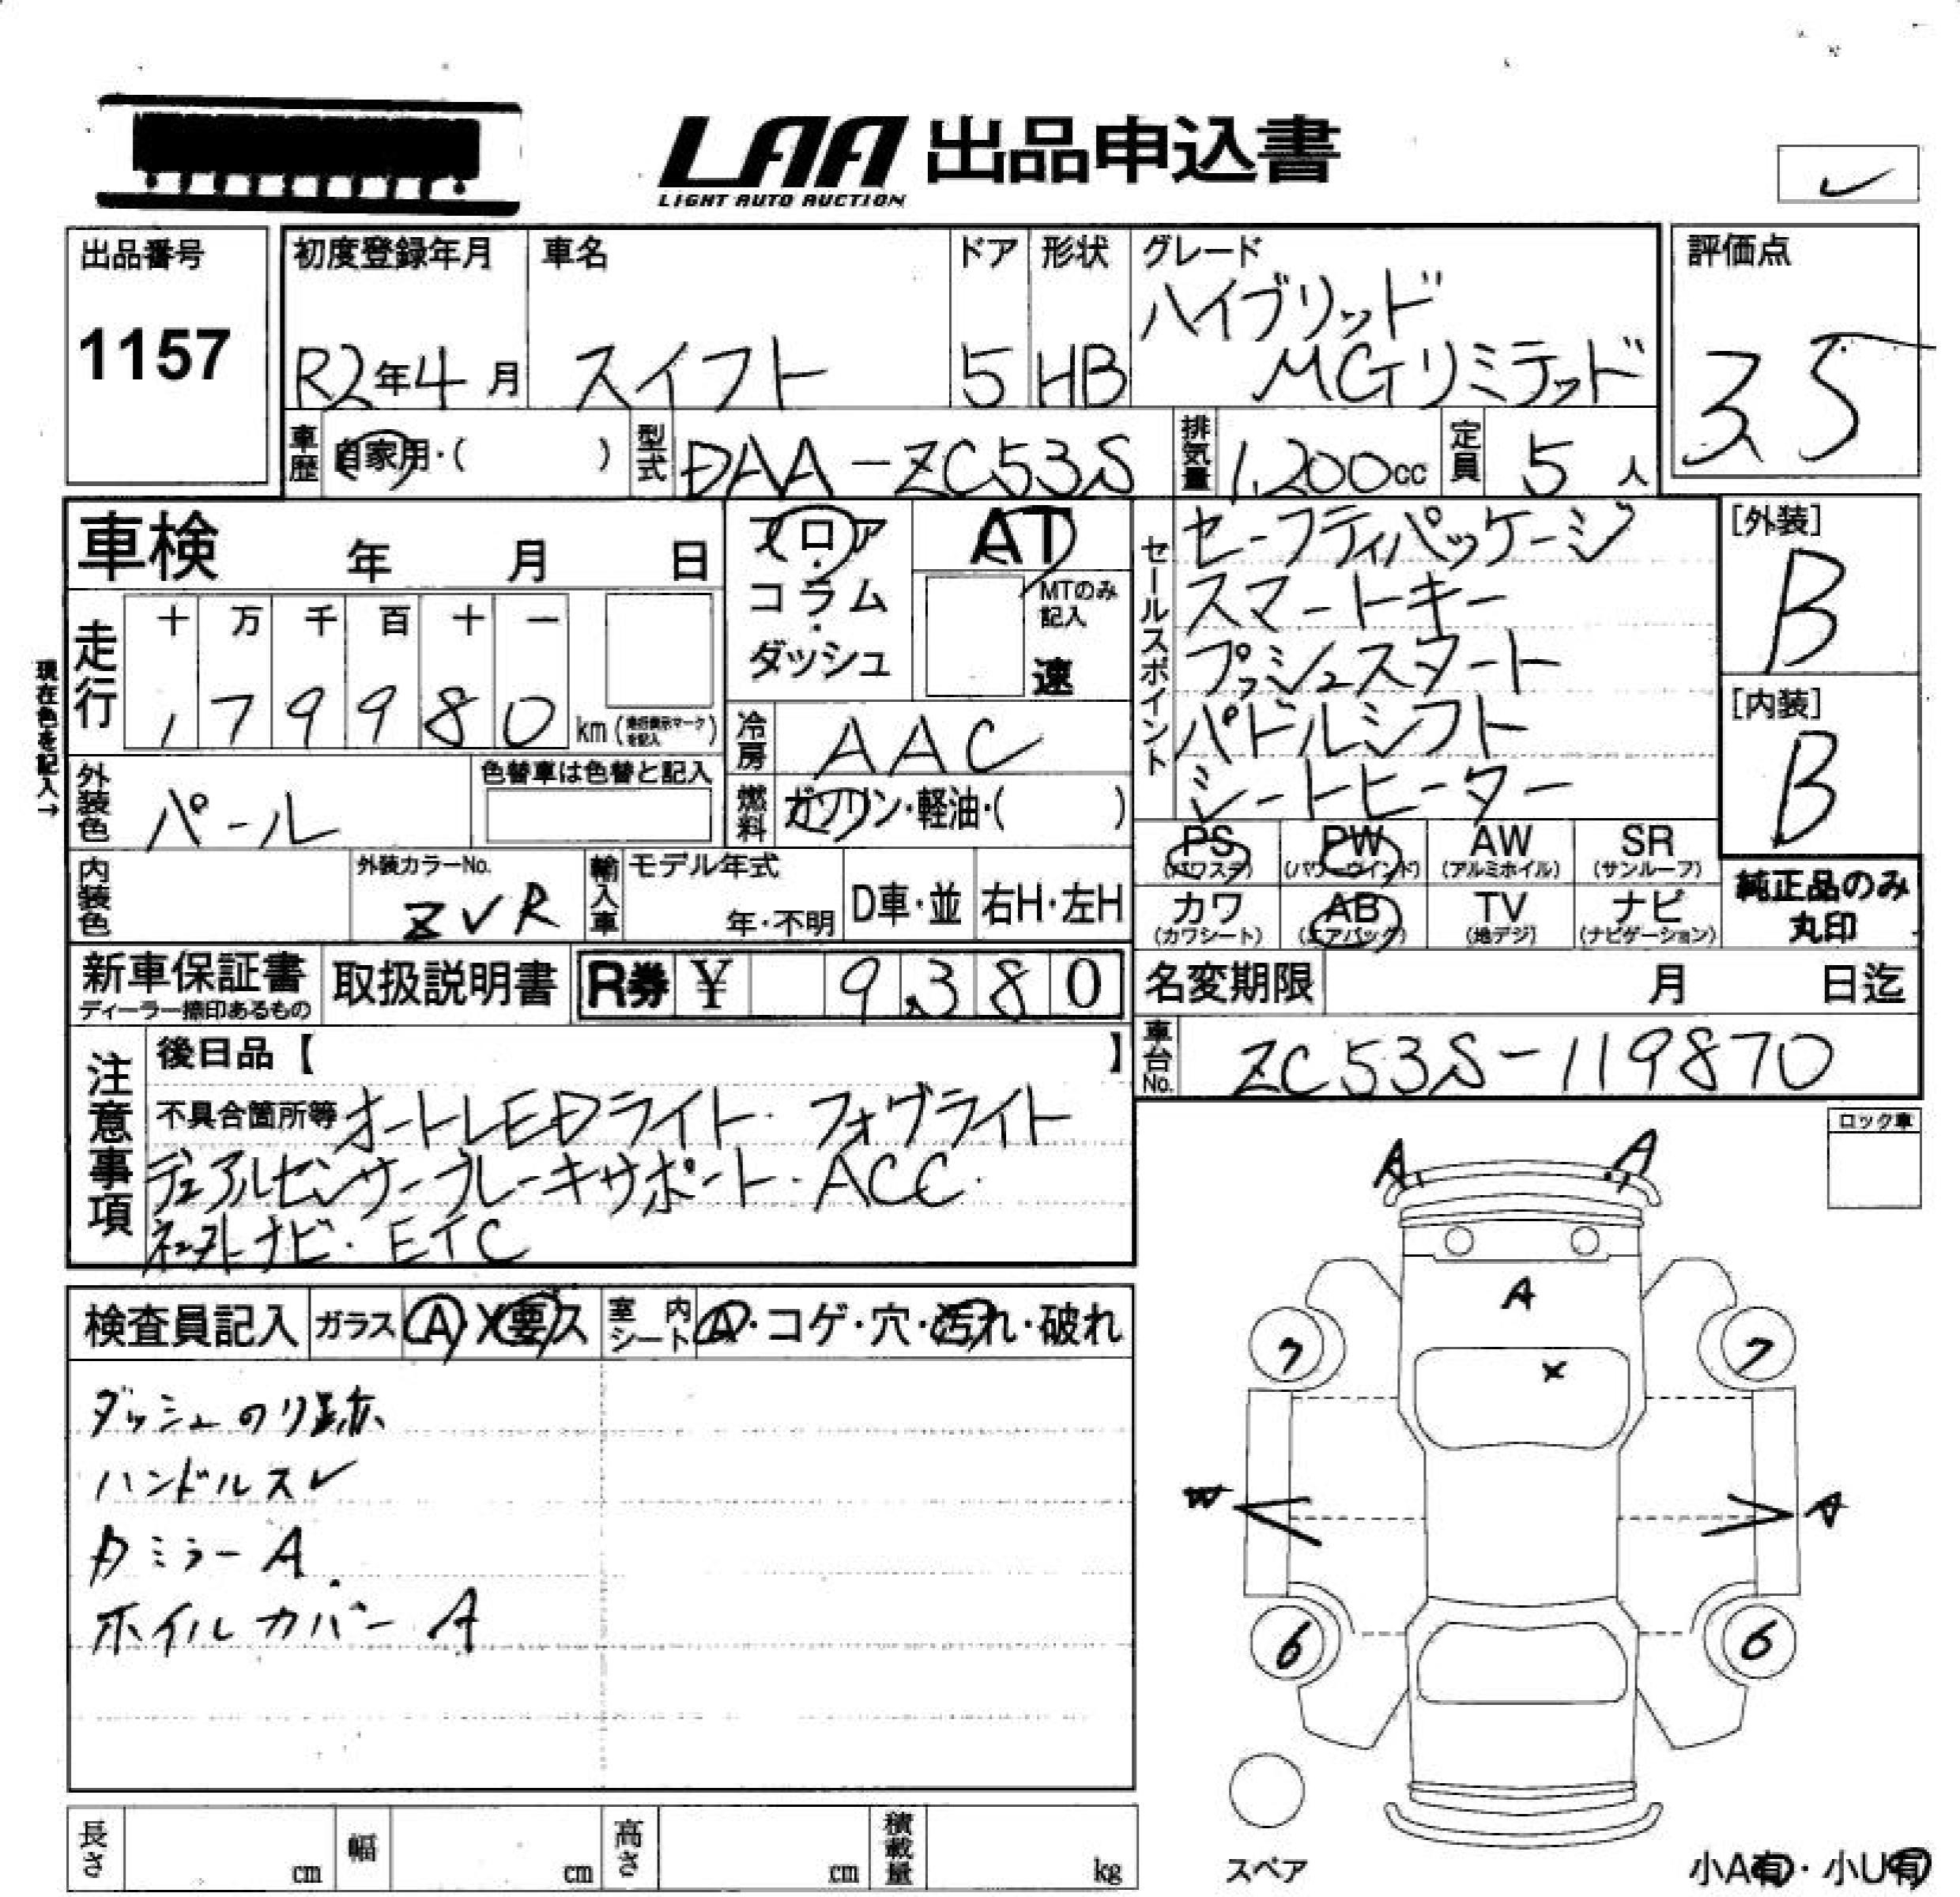 LAA 出品申込書
LIGHT AUTO AUCTION
出品番号
1157
初度登録年月
R2年4月
車名
スイフト
ドア
5
形状
HB
グレード
ハイブリッド
MGリミテッド
評価点
3.5
車歴
自家用・( )
型式
DAA-ZC53S
排気量
1,200cc
定員
5人
車検 年 月 日
走行
十 万 千 百 十 一
7 9 9 8 0 km
現在色を記入→
フロア・コラム・ダッシュ
AT
MTのみ記入
速
冷房
AAC
燃料
ガソリン・軽油・( )
外装色
パール
色替車は色替と記入
内装色
外装カラーNo.
ZVR
輸入車
モデル年式
年・不明
D車・並
右H・左H
セールスポイント
セーフティパッケージ
スマートキー
プッシュスタート
パドルシフト
シートヒーター
[外装]
B
[内装]
B
PS
(パワステ)
PW
(パワーウインド)
AW
(アルミホイル)
SR
(サンルーフ)
カワ
(カワシート)
AB
(エアバック)
TV
(地デジ)
ナビ
(ナビゲーション)
純正品のみ
丸印
新車保証書
ディーラー捺印あるもの
取扱説明書
R券 ¥ 9,380
名変期限 月 日迄
車台No.
ZC53S-119870
注意事項
後日品【 】
不具合箇所等 オートLEDライト・フォグライト
デュアルセンサーブレーキサポート・ACC・
ナビ・ETC
ロック車
検査員記入
ガラス
A・X要ス
室内シート
A・コゲ・穴・汚れ・破れ
ダッシュのり跡
ハンドルスレ
ミラーA
ホイルカバーA
A
A
A
X
7
7
W
A
6
6
スペア
長さ cm
幅 cm
高さ cm
積載量 kg
小A有・小U有